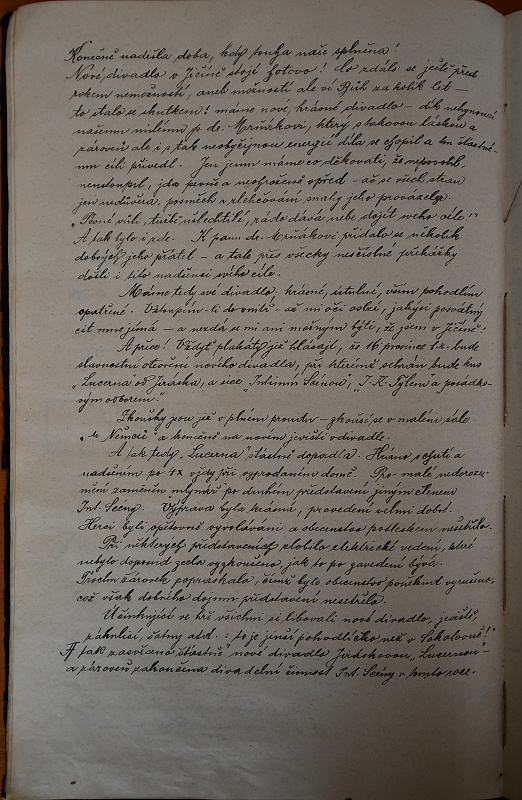 Konečně nadešla doba, kdy touha naše splněna!
Nové divadlo v Jičíně stojí hotovo! Co zdálo se ještě před
rokem nemožností, aneb možností ale ví Bůh za kolik let —
to stalo se skutkem! máme nové, krásné divadlo – dík nehynoucí
našemu milému p. dr. Mrňákovi, který s takovou láskou a
zároveň ale i s tak neobyčejnou energií díla se chopil a ku šťastné-
mu cíli přivedl. Jen jemu máme co děkovati, že nepovolil
neustoupil, šel pevně a neohroženě vpřed – ač se všech stran
jen nedůvěra, posměch a zlehčování snahy jeho provázely.
„Pevné vůli, tužbě ušlechtilé, rádo dává nebe dojíti svého cíle!"
A tak bylo i zde. K panu dr. Mrňákovi přidalo se několik
dobrých jeho přátel – a tak přes všecky nesčíslné překážky
došli i tito nadšenci svého cíle.
Máme tedy své divadlo krásné, útulné, vším pohodlím
opatřené. Vstoupím-li do vnitř – až mi oči oslní, jakýsi posvátný
cit mne jímá – a nezdá se mi ani možným býti, že jsem v Jičíně!
A přece! Vždyť plakáty již hlásají, že 16 prosince t.r. bude
slavnostní otevření nového divadla, při kterémž sehrán bude kus
„Lucerna" od Jiráska, a sice „Intimní Scénou", „J. K. Tylem" a posádko-
vým odborem.
Zkoušky jsou již v plném proudu – zkouší se v malém sále
„u Němců" a konečně na novém jevišti v divadle.
A tak tedy „Lucerna" šťastně dopadla. Hráno s chutí a
nadšením po 4x vždy při vyprodaném domě. Pro malé nedorozu-
mění zaměněn „mlynář" po druhém představení jiným členem
Int. Scény. Výprava byla krásná, provedení velmi dobré.
Herci byli opětovně vyvoláváni a obecenstvo potleskem nešetřilo.
Při některých představeních zlobilo elektrické vedení, které
nebylo doposud zcela vyzkoušeno, jak to po zavedení bývá.
Trochu žárovek popraskalo, čímž bylo obecenstvo poněkud vyrušeno,
což však dobrého dojmu představení nesetřelo.
Účinkující ve hře všichni si libovali nové divadlo, jeviště,
zákulisí, šatny atd.: „to je jinší pohodlíčko než v Sokolovně!"
A tak zasvěceno „šťastně" nové divadlo Jiráskovou „Lucernou"
a zároveň zakončena divadelní činnost Int. Scény v tomto roce.